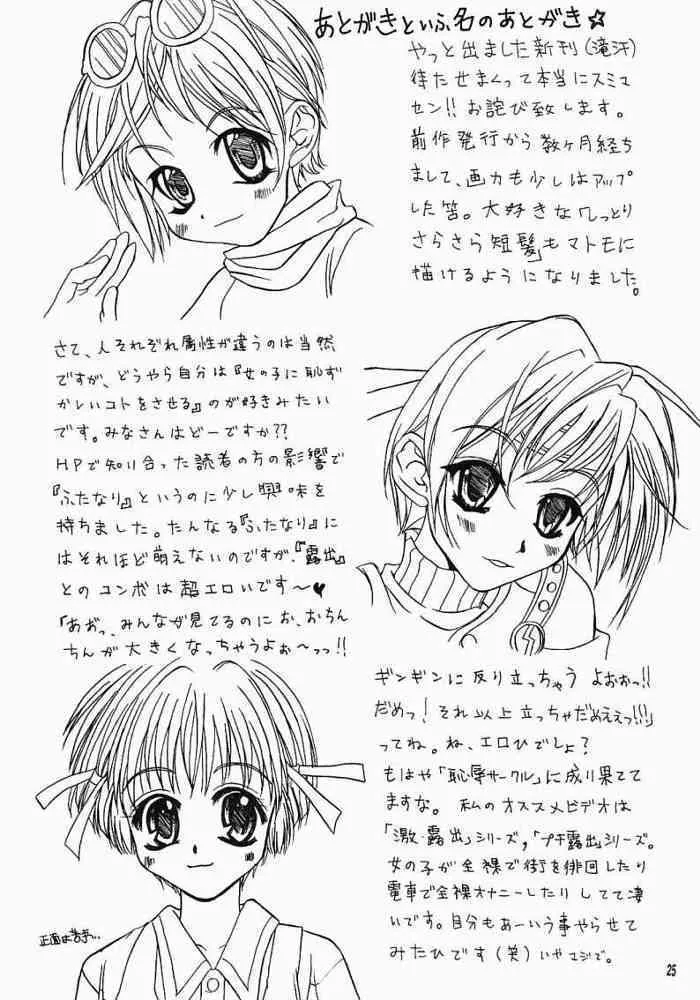 あとがきといふ名のあとがき☆
やっと出ました新刊(滝汗)
待たせまくって本当にスミマ
セン!!お詫び致します。
前作発行から数ヶ月経ち
まして、画力も少しはアップ
した筈。大好きな「しっとり
さらさら短髪」もマトモに
描けるようになりました。
さて、人それぞれ属性が違うのは当然
ですが、どうやら自分は『女の子に恥ず
かしいコトをさせる』のが好きみたい
です。みなさんはどーですか??
HPで知り合った読者の方の影響で
『ふたなり』というのに少し興味を
持ちました。たんなる『ふたなり』に
はそれほど萌えないのですが、『露出』
とのコンボは超エロいです〜♥
「あぉっ、みんなが見てるのにお、おちん
ちんが大きくなっちゃうよぉ〜っっ!!
ギンギンに反り立っちゃうよぉおっ!!
だめっ!それ以上立っちゃだめええっ!!!」
ってね。ね、エロひでしょ?
もはや「恥辱サークル」に成り果てて
ますな。私のオススメビデオは
「激・露出」シリーズ,「プチ露出」シリーズ。
女の子が全裸で街を徘回したり
電車で全裸オナニーしたりしてて凄
いです。自分もあーいう事やらせて
みたひです(笑)いやマジで。
正面は苦手…
25